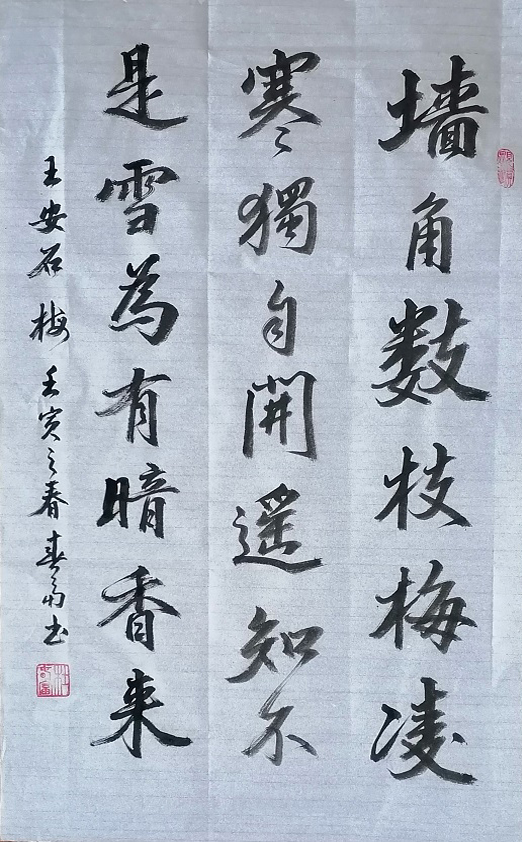 墙角数枝梅凌
寒獨自開遥知不
是雪為有暗香来
王安石 梅 壬寅之春 春 书